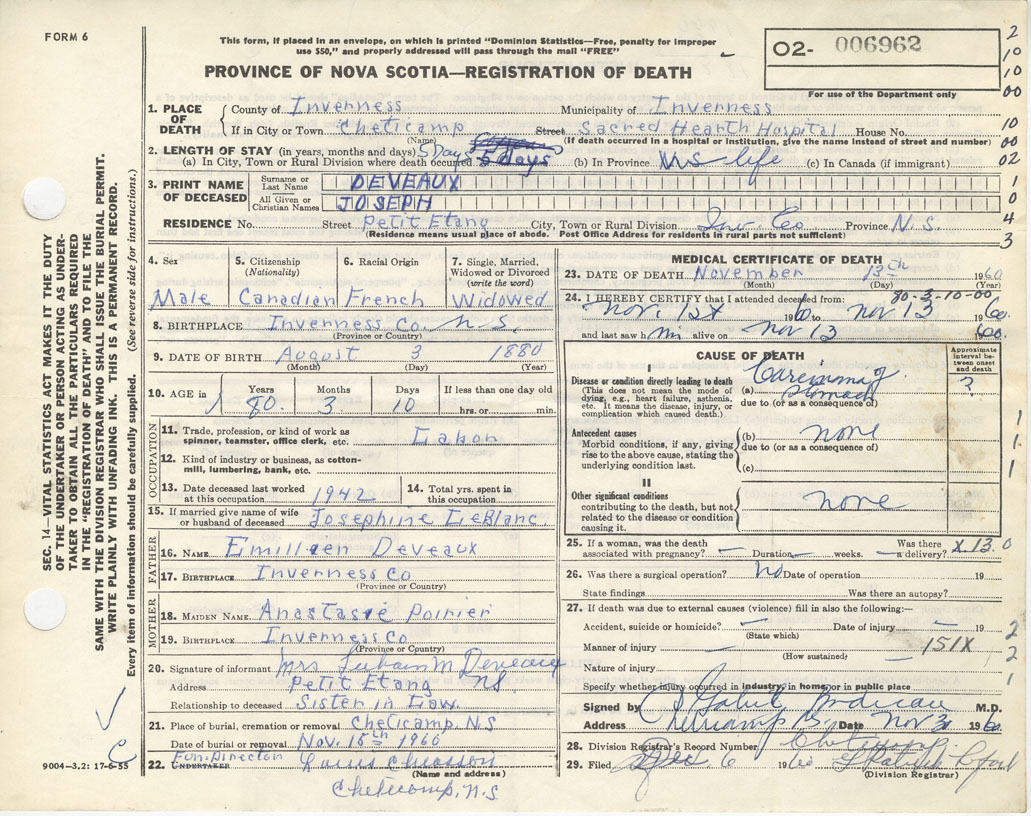 FORM 6
This form, if placed in an envelope, on which is printed "Dominion Statistics—Free, penalty for improper
use $50," and properly addressed will pass through the mail "FREE"
PROVINCE OF NOVA SCOTIA—REGISTRATION OF DEATH
02- 006962
For use of the Department only
2
10
10
00
10
00
02
1
0
4
3
SEC. 14—VITAL STATISTICS ACT MAKES IT THE DUTY
OF THE UNDERTAKER OR PERSON ACTING AS UNDER-
TAKER TO OBTAIN ALL THE PARTICULARS REQUIRED
IN THE "REGISTRATION OF DEATH" AND TO FILE THE
SAME WITH THE DIVISION REGISTRAR WHO SHALL ISSUE THE BURIAL PERMIT.
WRITE PLAINLY WITH UNFADING INK. THIS IS A PERMANENT RECORD.
Every item of information should be carefully supplied. (See reverse side for instructions.)
1. PLACE OF DEATH County of Inverness Municipality of Inverness
If in City or Town Cheticamp Street Sacred Hearth Hospital House No.
(Name) (If death occurred in a hospital or institution, give the name instead of street and number)
2. LENGTH OF STAY (in years, months and days) 5 Days
(a) In City, Town or Rural Division where death occurred 5 days (b) In Province life (c) In Canada (if immigrant)
3. PRINT NAME OF DECEASED Surname or Last Name DEVEAUX
All Given or Christian Names JOSEPH
RESIDENCE No. Street Petit Etang City, Town or Rural Division Inv. Co Province N.S.
(Residence means usual place of abode. Post Office Address for residents in rural parts not sufficient)
4. Sex 5. Citizenship (Nationality) 6. Racial Origin 7. Single, Married, Widowed or Divorced (write the word)
Male Canadian French Widowed
8. BIRTHPLACE Inverness Co. N.S.
(Province or Country)
9. DATE OF BIRTH August 3 1880
(Month) (Day) (Year)
10. AGE in Years Months Days If less than one day old
80. 3 10 hrs. or min.
OCCUPATION
11. Trade, profession, or kind of work as spinner, teamster, office clerk, etc. Labor
12. Kind of industry or business, as cotton-mill, lumbering, bank, etc.
13. Date deceased last worked at this occupation 1942 14. Total yrs. spent in this occupation
15. If married give name of wife or husband of deceased Josephine LeBlanc
FATHER
16. NAME Emilien Deveaux
17. BIRTHPLACE Inverness Co
(Province or Country)
MOTHER
18. MAIDEN NAME Anastasie Poirier
19. BIRTHPLACE Inverness Co
(Province or Country)
20. Signature of informant Mrs Lubain M Deveaux
Address Petit Etang NS
Relationship to deceased Sister in Law.
21. Place of burial, cremation or removal Cheticamp. N.S
Date of burial or removal Nov. 15th 1960
Fun. Director
22. UNDERTAKER Louis Chiasson
(Name and address)
Cheticamp, N.S.
9004—3.2: 17-6-55
MEDICAL CERTIFICATE OF DEATH
23. DATE OF DEATH November 13th 1960
(Month) (Day) (Year)
80-3-10-00
24. I HEREBY CERTIFY that I attended deceased from:
Nov. 1st 1960 to Nov 13 1960.
and last saw him alive on Nov 13 1960.
CAUSE OF DEATH
Approximate interval between onset and death
I
Disease or condition directly leading to death (a) Carcinoma of Stomach ?
(This does not mean the mode of dying, e.g., heart failure, asthenia, etc. It means the disease, injury, or complication which caused death.)
due to (or as a consequence of)
Antecedent causes (b) none
Morbid conditions, if any, giving rise to the above cause, stating the underlying condition last.
due to (or as a consequence of)
(c)
II
Other significant conditions none
contributing to the death, but not related to the disease or condition causing it.
1
1
1
25. If a woman, was the death associated with pregnancy? — Duration — weeks. Was there a delivery? — X13.0
26. Was there a surgical operation? No Date of operation 19
State findings Was there an autopsy?
27. If death was due to external causes (violence) fill in also the following:—
Accident, suicide or homicide? — Date of injury — 19
(State which)
Manner of injury — 151X
(How sustained)
Nature of injury
Specify whether injury occurred in industry, in home, or in public place
2
2
1
Signed by M.D.
Address Cheticamp Date Nov 30 1960
28. Division Registrar's Record Number
29. Filed Dec. 6 1960
(Division Registrar)